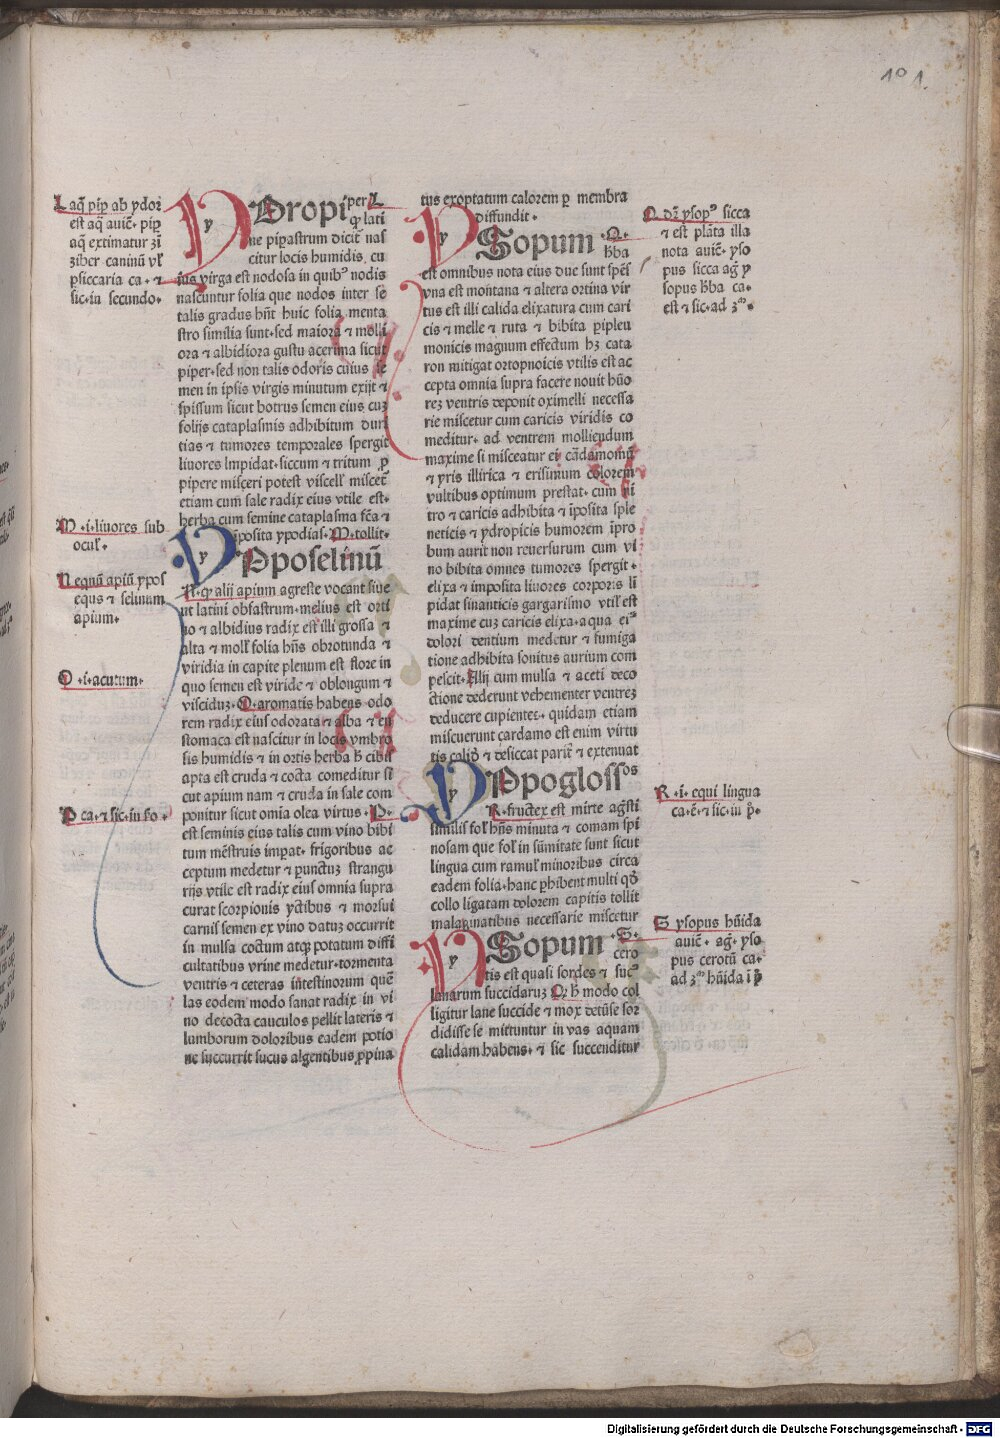 101
L aq̄ pip̄ ab ydor
est aq̄ auic̄· pip̄
aq̄ extimatur zī
ziber caninū vl'
psiccaria ca· ⁊
sic·in secundo·
M ·i·liuores sub
ocul'·
N equū apiū ypos
equs ⁊ selinum
apium·
O ·i·acutum·
P ca·⁊ sic·in
Ydropiper L
qꝫ lati
ne pipastrum dicit̄ nas
citur locis humidis cu
ius virga est nodosa in quibꝰ nodis
nascuntur folia que nodos inter se
talis gradus hn̄t huic folia menta
stro similia sunt·sed maiora ⁊ molli
ora ⁊ albidiora gustu acerima sicut
piper·sed non talis odoris cuius se
men in ipsis virgis minutum exijt ⁊
spissum sicut botrus semen eius cuꝫ
folijs cataplasmis adhibitum duri
tias ⁊ tumores temporales spergit
liuores limpidat·siccum ⁊ tritum p̄
pipere misceri potest viscell' miscet̄
etiam cum sale radix eius vtile est·
herba cum semine cataplasma fc̄a ⁊
īposita ypodias·M·tollit·
Yposelinū
N·qꝫ alij apium agreste vocant siue
ut latini obsastrum·melius est orti
uo ⁊ albidius radix est illi grossa ⁊
alta ⁊ moll' folia hn̄s obrotunda ⁊
viridia in capite plenum est flore in
quo semen est viride ⁊ oblongum ⁊
visciduꝫ·O·aromatis habens odo
rem radix eius odorata ⁊ alba ⁊ eu
stomaca est nascitur in locis vmbro
sis humidis ⁊ in ortis herba h̄ cibis
apta est cruda ⁊ cocta comeditur si
cut apium nam ⁊ cruda in sale com
ponitur sicut omia olea virtus ·P·
est seminis eius talis cum vino bibi
tum mēstruis impat· frigoribus ac
ceptum medetur ⁊ punctuꝫ strangu
rijs vtile est radix eius omnia supra
curat scorpionis yctibus ⁊ morsui
carnis semen ex vino datuꝫ occurrit
in mulsa coctum atqꝫ potatum diffi
cultatibus vrine medetur·tormenta
ventris ⁊ ceteras intestinorum quē
las eodem modo sanat radix in vi
no decocta cauculos pellit lateris ⁊
lumborum doloribus eadem potio
ne succurrit sucus algentibus ꝓpina
tus exoptatum calorem p̄ membra
diffundit·
Ysopum ·Q·
h̄ba
est omnibus nota eius due sunt spēs
vna est montana ⁊ altera ortina vir
tus est illi calida elixatura cum cari
cis ⁊ melle ⁊ ruta ⁊ bibita pipleu
monicis magnum effectum hꝫ cata
ron mitigat ortopnoicis vtilis est ac
cepta omnia supra facere nouit hūo
reꝫ ventris deponit oximelli necessa
rie miscetur cum caricis viridis co
meditur· ad ventrem molliendum
maxime si misceatur ei cādamomū
⁊ yris illirica ⁊ erisimum colorem
vultibus optimum prestat· cum ni
tro ⁊ caricis adhibita ⁊ īposita sple
neticis ⁊ ydropicis humorem īpro
bum aurit non reuersurum cum vi
no bibita omnes tumores spergit·
elixa ⁊ imposita liuores corporis li
pidat sinanticis gargarismo vtil' est
maxime cuꝫ caricis elixa·aqua eiꝰ
dolori dentium medetur ⁊ fumiga
tione adhibita sonitus aurium com
pescit·Alij cum mulsa ⁊ aceti deco
ctione dederunt vehementer ventreꝫ
deducere cupientes· quidam etiam
miscuerunt cardamo est enim virtu
tis calid̄ ⁊ desiccat parit̄ ⁊ extenuat
Ypoglossos
R·fructex est mirte agrsti
similis fol' hn̄s minuta ⁊ comam spi
nosam que fol' in sūmitate sunt sicut
lingua cum ramul' minoribus circa
eadem folia·hanc phibent multi qđ
collo ligatam dolorem capitis tollit
malagmatibus necessarie miscetur
Ysopum ·S·
cero
tis est quasi sordes ⁊ sucꝰ
lanarum succidaruꝫ Q̄ h̄ modo col
ligitur lane succide ⁊ mox detūse sor
didisse se mittuntur in vas aquam
calidam habens· ⁊ sic succenditur
Q dr̄ ysopꝰ sicca
⁊ est plāta illa
nota auic̄· yso
pus sicca aḡ y
sopus h̄ba ca·
est ⁊ sic·ad 3ᵐ·
R ·i· equi lingua
ca·ē·⁊ sic·in p̄·
S ysopus hūida
auic̄· aḡ· yso
pus cerotū ca·
ad 3ᵐ hūida ī p̄
Digitalisierung gefördert durch die Deutsche Forschungsgemeinschaft - DFG